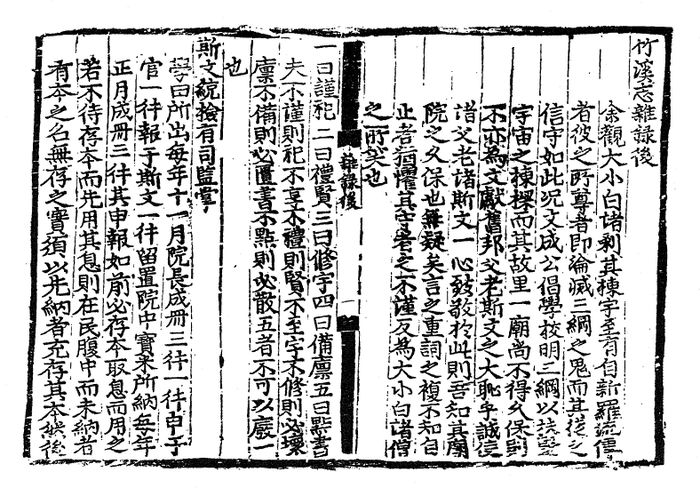 竹溪志雜錄後
余觀大小白諸刹其棟宇至有自新羅流傳
者彼之所尊者即淪滅三綱之鬼而其後之
信守如此况文成公倡學校明三綱以扶竪
宇宙之棟樑而其故里一廟尚不得久保則
不亦為文獻舊邦父老斯文之大恥乎誠使
諸父老諸斯文一心致敬於此則吾知其廟
院之久保也無疑矣言之重詞之複不知自
止者猶懼其守者之不謹反為大小白諸僧
之所笑也
雜錄後
一曰謹祀二曰禮賢三曰修宇四曰備廩五曰點書
夫不謹則祀不享不禮則賢不至宇不修則必壞
廩不備則必匱書不點則必散五者不可以廢一
也
斯文統撿有司監掌
學田所出每年十一月院長成冊三件一件申于
官一件報于斯文一件留置院中實米所納每年
正月成冊三件其申報如前必存夲取息而用之
若不待存夲而先用其息則在民腹中而未納者
有夲之名無存之實須以先納者充存其本然後